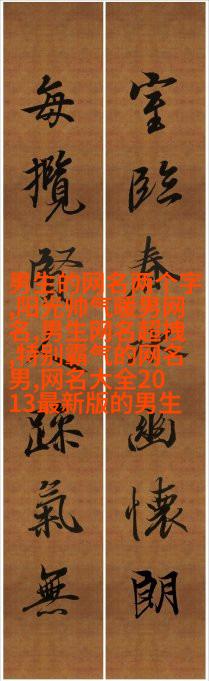 室臨春幽懷朗
每攬氣無
男生的网名两个字
,阳光帅气暖男网
名,男生网名超拽
,特别霸气的网名
男,网名大全20
13最新版的男生